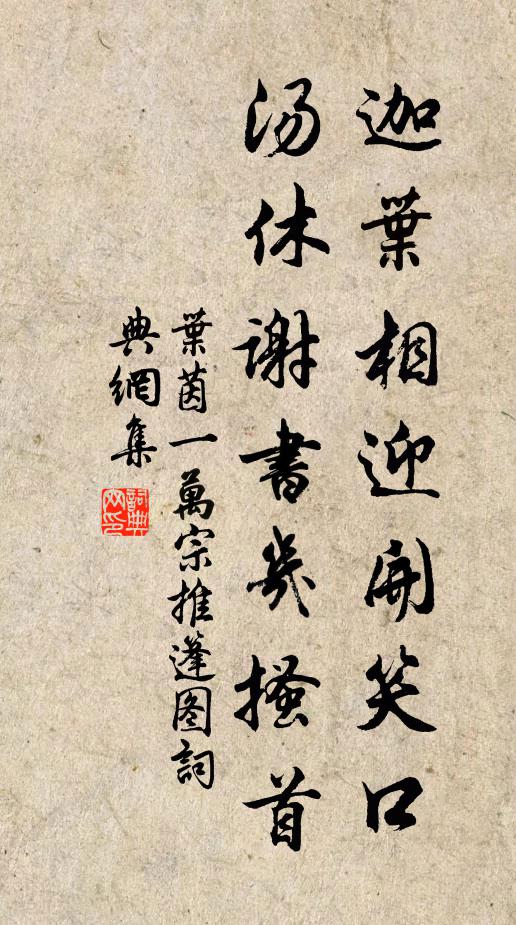 迦葉相迎開笑口
汤休謝書幾搔首
葉茵一萬宗推篷图詞
典網集
詞典网印